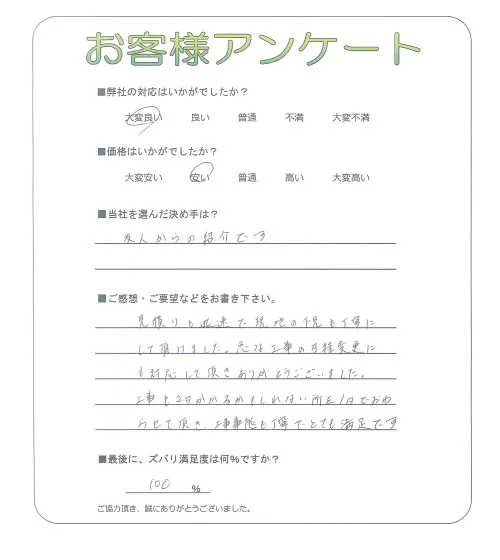 お客様アンケート
■弊社の対応はいかがでしたか？
大変良い 良い 普通 不満 大変不満
■価格はいかがでしたか？
大変安い 安い 普通 高い 大変高い
■当社を選んだ決め手は？
友人からの紹介です
■ご感想・ご要望などをお書き下さい。
見積りも迅速で現地の下見も丁寧に
して頂けました。急な工事の日程変更に
も対応して頂きありがとうございました。
工事も2日かかるかもしれない所を1日でおわ
らせて頂き、工事も丁寧でとても満足です
■最後に、ズバリ満足度は何％ですか？
100 ％
ご協力頂き、誠にありがとうございました。